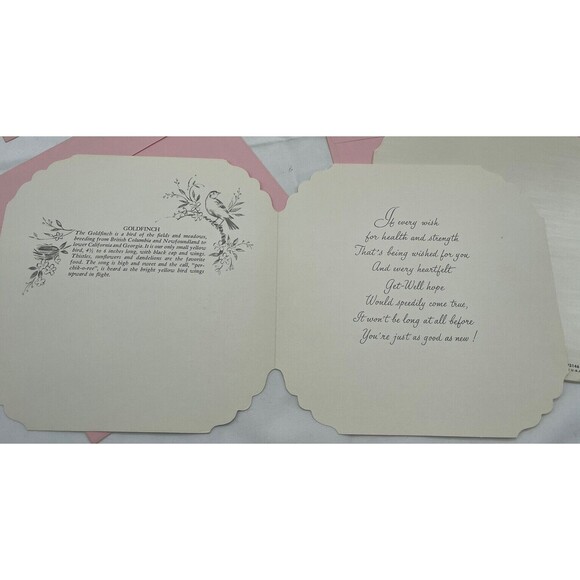 GOLDFINCH
The Goldfinch is a bird of the fields and meadows,
breeding from British Columbia and Newfoundland to
lower California and Georgia. It is our only small yellow
bird, 4½ to 6 inches long, with black cap and wings.
Thistles, sunflowers and dandelions are the favorite
food. The song is high and sweet and the call, "per-
chik-o-ree", is heard as the bright yellow bird wings
upward in flight.
If every wish
for health and strength
That's being wished for you
And every heartfelt
Get-Well hope
Would speedily come true,
It won't be long at all before
You're just as good as new!